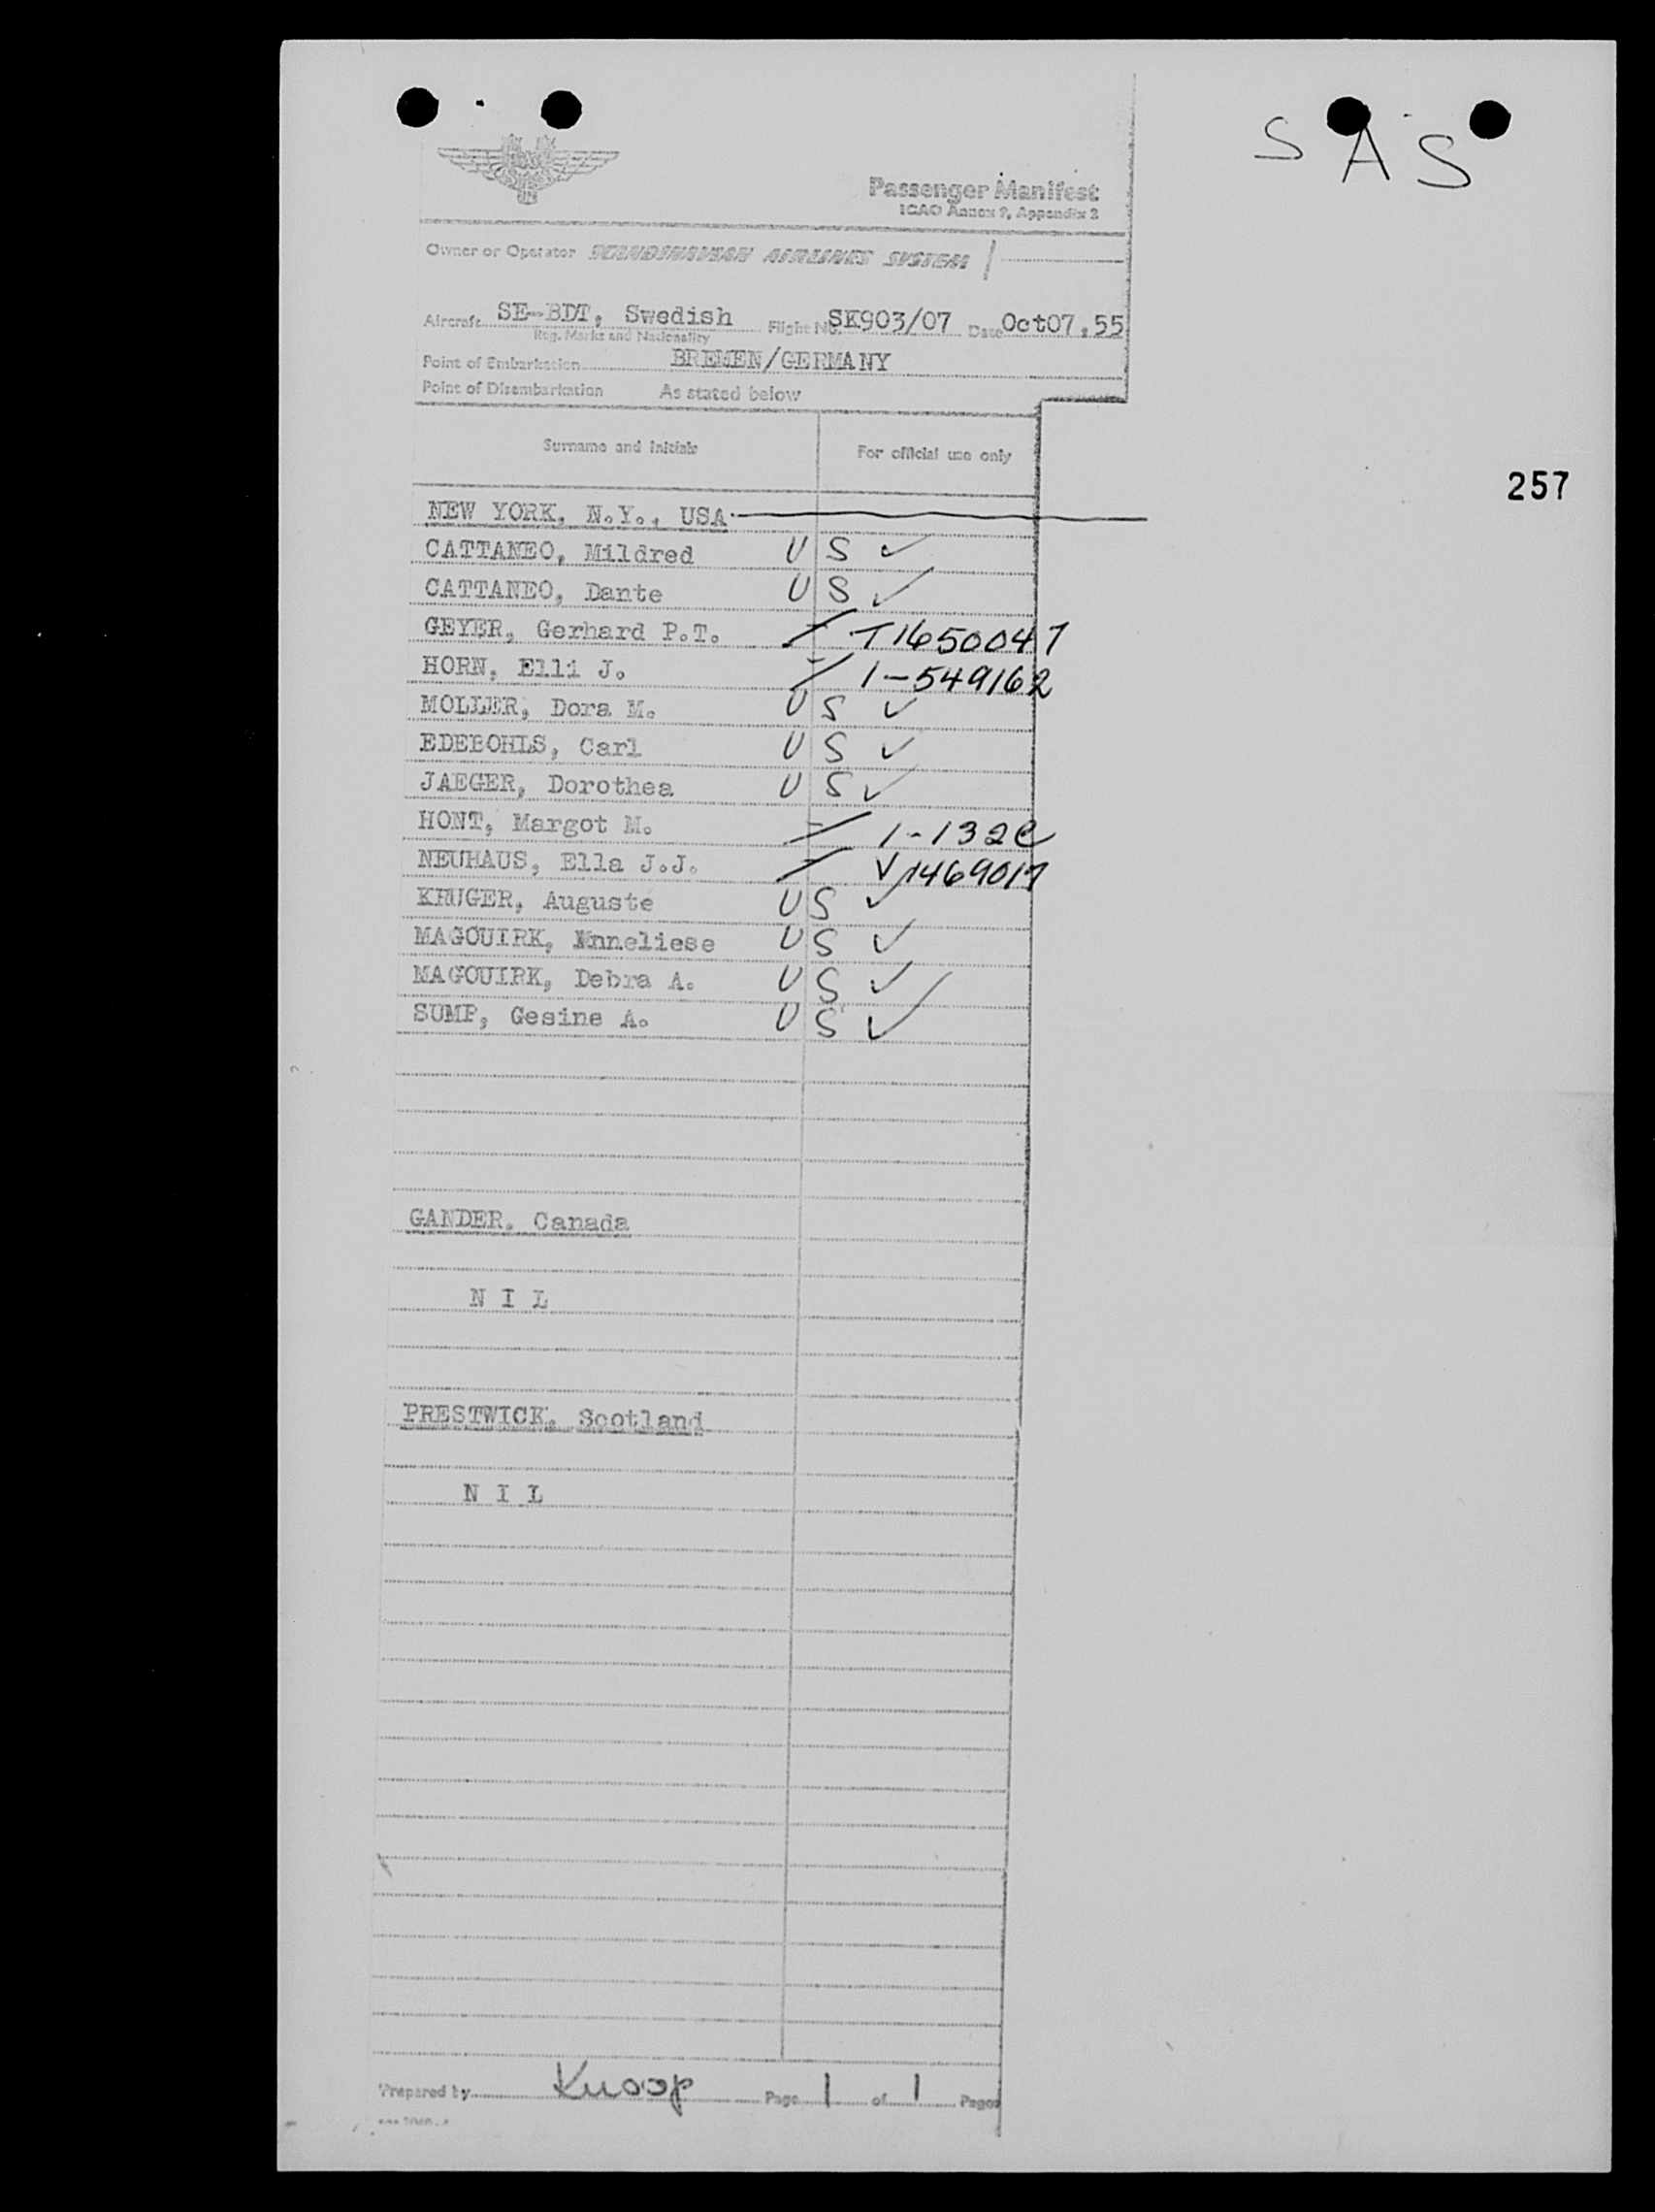 S A S
Passenger Manifest
ICAO Annex 9, Appendix 2
Owner or Operator SCANDINAVIAN AIRLINES SYSTEM
Aircraft SE-BDT, Swedish Flight No. SK903/07 Date Oct07,55
Reg. Marks and Nationality
Point of Embarkation BREMEN/GERMANY
Point of Disembarkation As stated below
Surname and Initials For official use only
257
NEW YORK, N.Y., USA
CATTANEO, Mildred U S ✓
CATTANEO, Dante U S ✓
GEYER, Gerhard P.T. T1650047
HORN, Elli J. 1-549162
MOLLER, Dora M. U S ✓
EDEBOHLS, Carl U S ✓
JAEGER, Dorothea U S ✓
HONT, Margot M. 1-132
NEUHAUS, Ella J.J. V1469017
KRUGER, Auguste U S ✓
MAGOUIRK, Anneliese U S ✓
MAGOUIRK, Debra A. U S ✓
SUMP, Gesine A. U S ✓
GANDER, Canada
N I L
PRESTWICK, Scotland
N I L
Prepared by Knoop Page 1 of 1 Pages